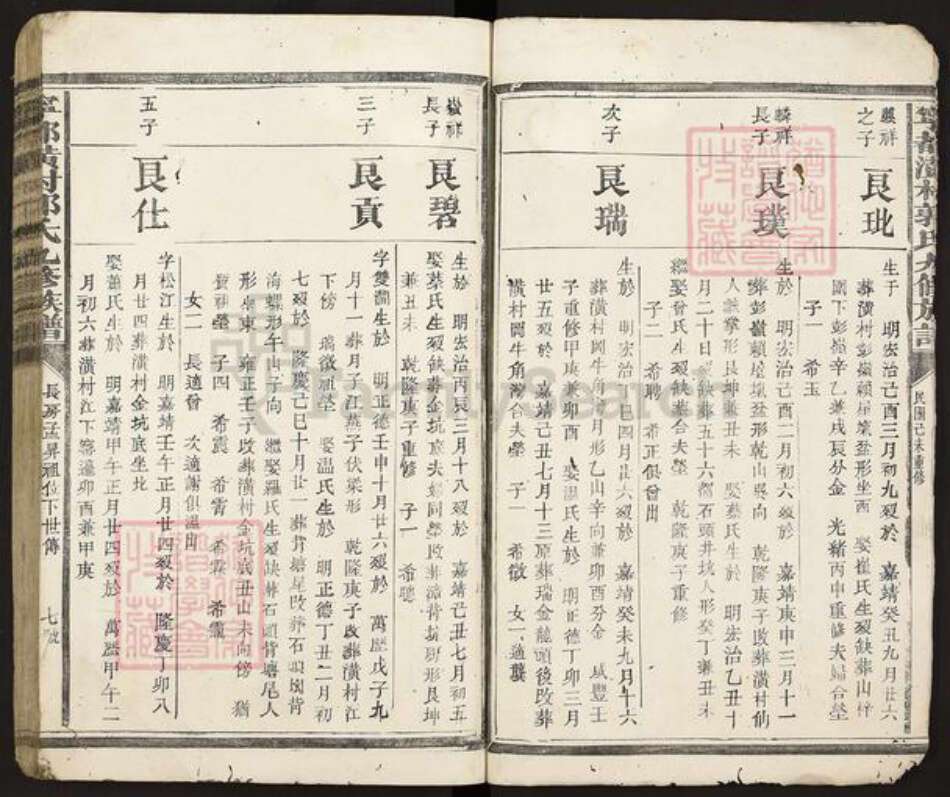 民國己未重修
襲祥
之子
良玭
生于 明宏治己酉三月初九歿於 嘉靖癸丑九月廿六
葬潢村彭嶺賴屋塅盆形坐西 娶崔氏生歿缺葬山梓
圍下彭嶺辛乙兼戌辰分金 光緒丙申重修夫婦合塋
子一 希玉
麟祥
長子
良璞
生於 明宏治己酉二月初六歿於 嘉靖庚申三月十一
葬彭嶺賴屋塅盆形乾山巽向 乾隆庚子改葬潢村仙
人 掌形艮坤兼丑未 娶蔡氏生於 明宏治乙丑十
月二十日歿缺葬五十六都石頭井 人形癸丁兼丑未
繼娶曾氏生歿缺葬合夫塋 乾隆庚子重修
子二 希聘 希正俱曾出
次子
良瑞
生於 明宏治丁巳四月廿六歿於 嘉靖癸未九月十六
葬潢村岡牛角灣月形乙山辛向兼卯酉分金 咸豐壬
子重修甲庚兼卯酉 娶溫氏生於 明正德丁卯三月
廿五歿於 嘉靖己丑七月十三原葬瑞金龍頭後改葬
潢村岡牛角灣合夫塋 子一 希徵 女一適龔
祥
長子
良碧
生於 明宏治丙辰三月十八歿於 嘉靖己丑七月初五
娶蔡氏生歿缺葬金坑底夫婦同塋改葬漳背 形艮坤
兼丑未 乾隆庚子重修 子一 希聰
三子
良貢
字雙 生於 明正德壬申十月廿六歿於 萬歷戊子九
月十一葬月子江燕子伏梁形 乾隆庚子改葬潢村江
下傍 瑞徵祖塋 娶溫氏生於 明正德丁丑二月初
七歿於 隆慶己巳十月廿一葬背塘尾改葬石 背
海螺形午山子向 繼娶羅氏生歿缺葬石頭背塘尾人
形 東 雍正壬子改葬潢村金坑底丑山未向傍 猶
祖塋 子四 希震 希霄 希霖 希靈
女二 長適曾 次適謝俱溫出
五子
良仕
字松江生於 明嘉靖壬午正月廿四歿於 隆慶丁卯八
月廿四葬潢村金坑底坐北
娶蕭氏生於 明嘉靖甲午正月廿四歿於 萬歷甲午二
月初六葬潢村江下寨 卯酉兼甲庚
寧都潢村郭氏九修族譜
長房孟昇祖位下世傳
七號